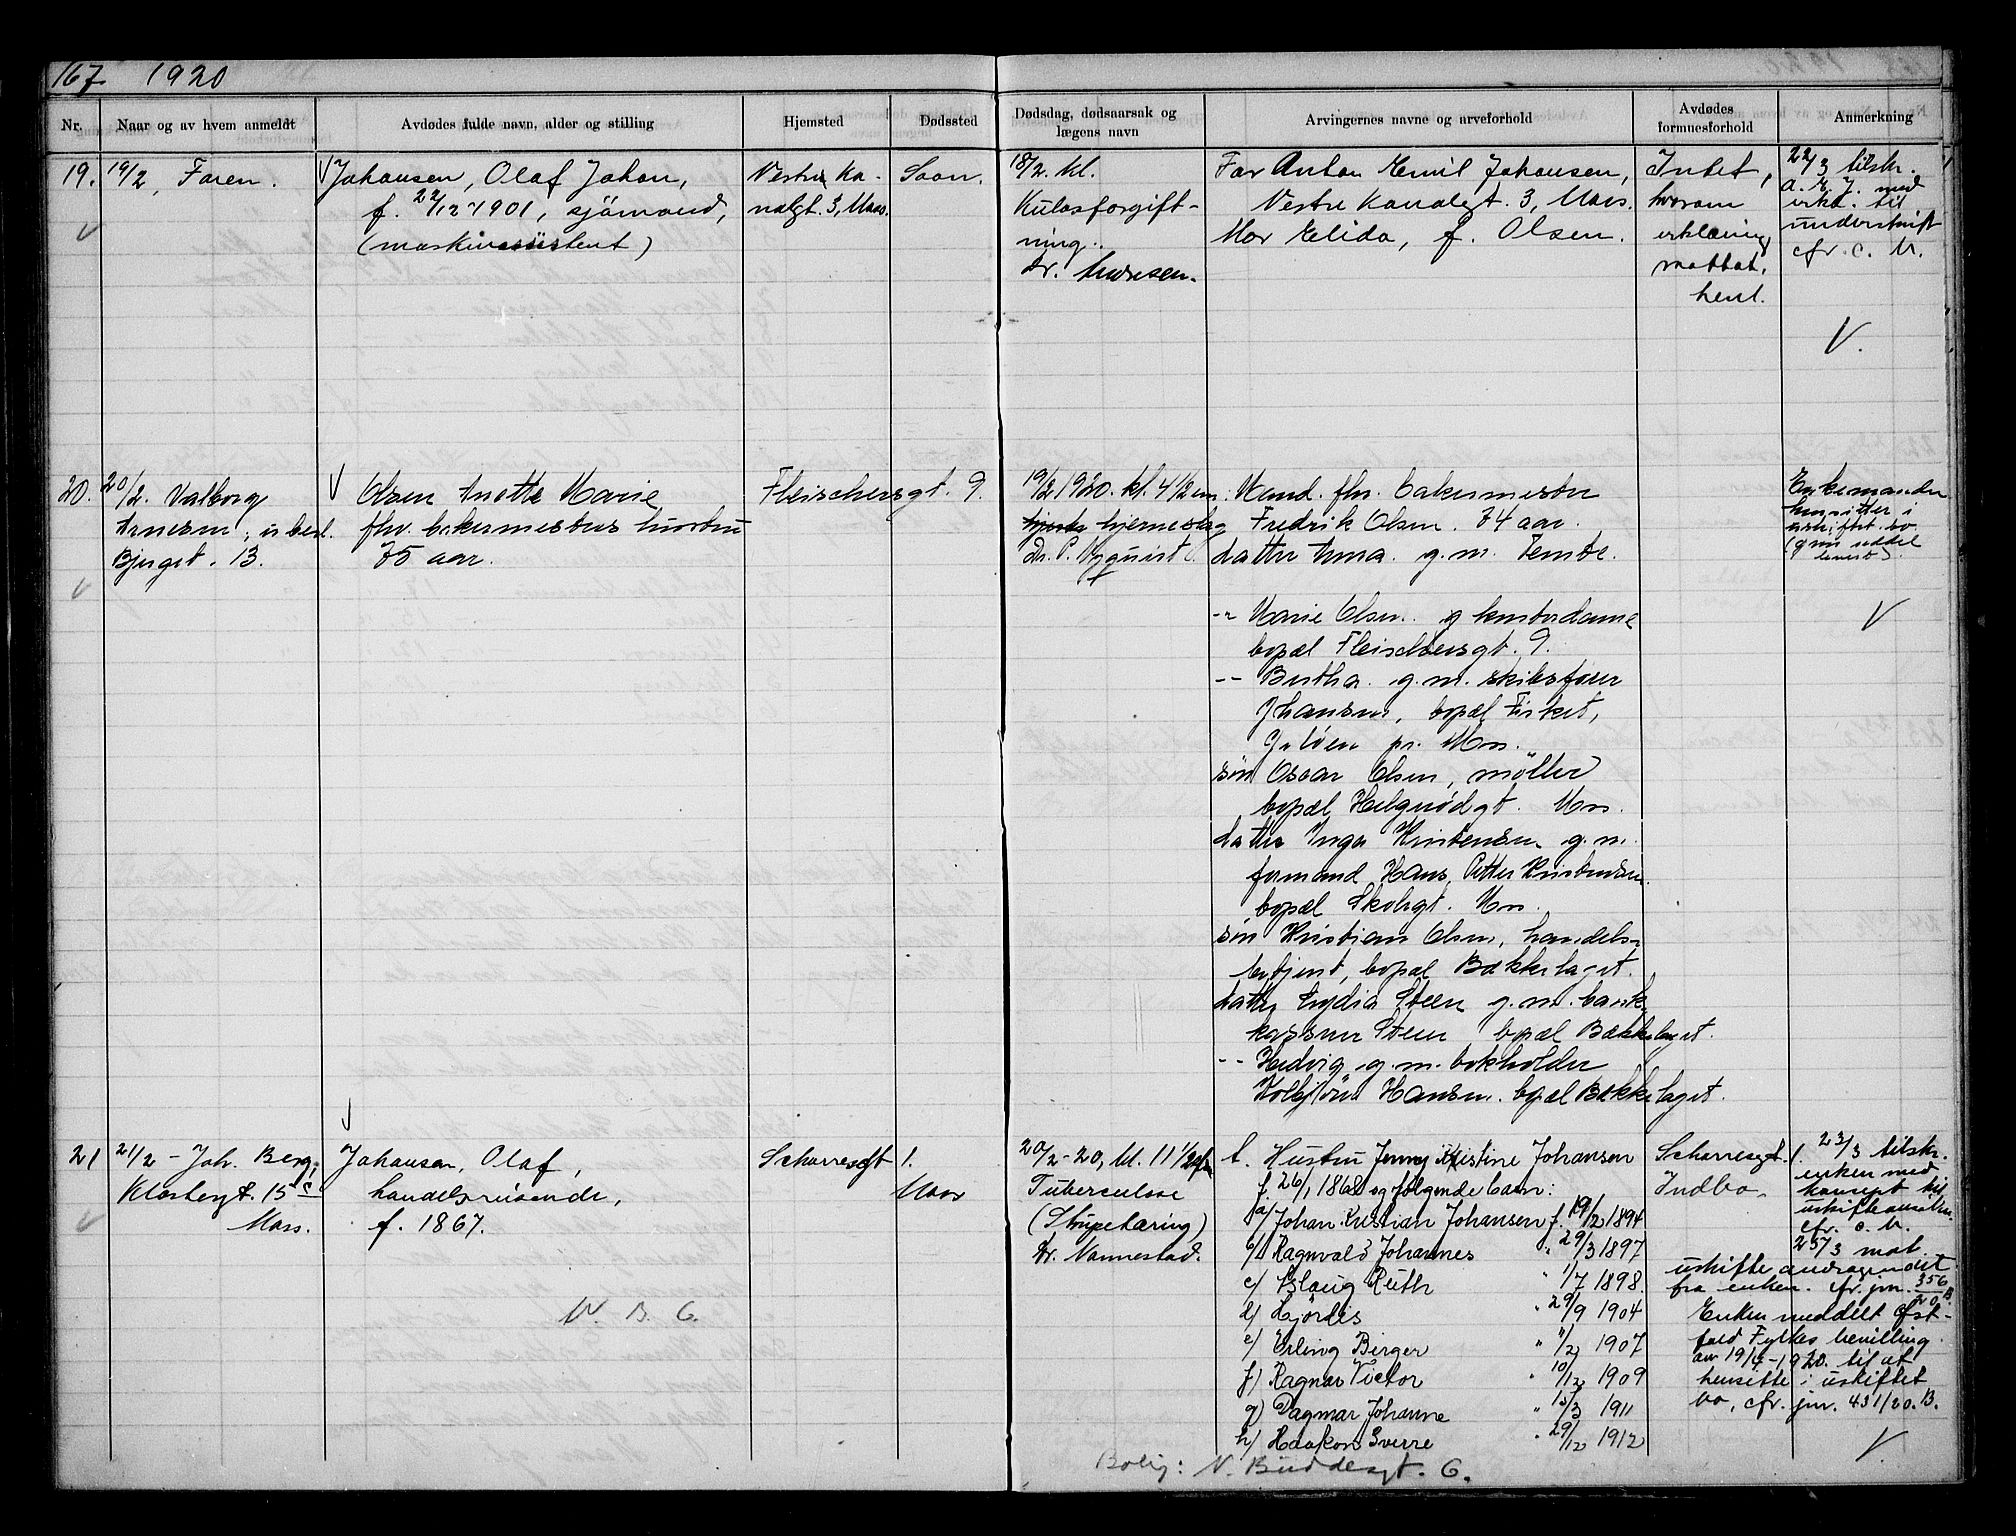 167. 1920
Nr.
Naar og av hvem anmeldt
Avdødes fulde navn, alder og stilling
Hjemsted
Dødssted
Dødsdag, dødsaarsak og
lægens navn
Arvingernes navne og arveforhold
Avdødes
formuesforhold
Anmerkning
19.
19/2, Faren.
Johansen, Olaf Johan,
f. 22/12 1901, sjömand,
(maskinassistent)
Vestre Ka-
nalgt. 3, Moss.
Soon.
18/2. kl.
Kulosforgift-
ning.
Dr.
Far Anton Emil Johansen,
Vestre Kanalgt. 3, Moss.
Mor Elida, f. Olsen.
Intet,
hvorom
erklæring
mottat.
henl.
22/3 tilskr.
A. E. J. med
erkl. til
underskrift
cfr. c. M.
V.
20.
20/2. Valborg
Arnesen,
Bjerget. 13.
Olsen Anette Marie
fhv. bakermesters hustru
75 aar.
Fleischersgt. 9.
19/2 1920. kl. 4 1/2 em.
hjerneslag
Dr. P. Nyquist.
Mand. fhv. bakermester
Fredrik Olsen. 74 aar.
datter Anna. g. m.
-"- Marie Olsen.
bopæl Fleischersgt. 9.
-"- Bertha. g. m. skibsfører
Johansen, bopæl
Jeløen pr. Moss.
sön Oscar Olsen, möller
bopæl Helgerödgt. Moss.
datter Inga Kristensen g. m.
formand Hans Petter Kristensen.
bopæl Skolegt. Moss.
sön Kristian Olsen, handels-
betjent, bopæl Bækkelaget.
datter Lydia Steen g. m. bank-
kasserer Steen bopæl Bækkelaget.
-"- Hedvig g. m. bokholder
Kolbjörn Hansen. bopæl Bækkelaget.
Enkemanden
hensitter i
uskiftet bo
V
21
21/2 - Joh. Berg,
Klostergt. 15 c
Moss.
Johansen, Olaf,
handelsreisende,
f. 1867.
N. B. 6.
Scharresgt 1.
Moss
20/2 - 20, kl. 11 1/2
Tuberculose
(Strupetæring)
Dr. Vannestad.
t. Hustru Jenny Kristine Johansen
f. 26/1 1868 og følgende barn:
a/ Johan Kristian Johansen f. 19/2 1894
b/ Ragnvald Johannes " 29/3 1897
c/ Aslaug Ruth " 1/7 1898.
d/ Hjördis " 29/9 1904
e/ Erling Birger " 11/2 1907
f/ Ragnar Victor " 10/12 1909
g/ Dagmar Johanne " 15/3 1911
h/ Haakon Sverre " 29/12 1912
Bolig: N. Buddesgt. 6.
Scharresgt. 1.
Indbo.
23/3 tilskr.
enken med
koncept til
cfr. c. M.
25/3 mot.
uskifteandragendet
fra enken. cfr. jnr. 356/20 B.
Enken meddelt Øst-
fold Fylkes bevilling
av 19/4-1920. til at
hensitte i uskiftet
bo, cfr. jnr. 431/20. B.
V.